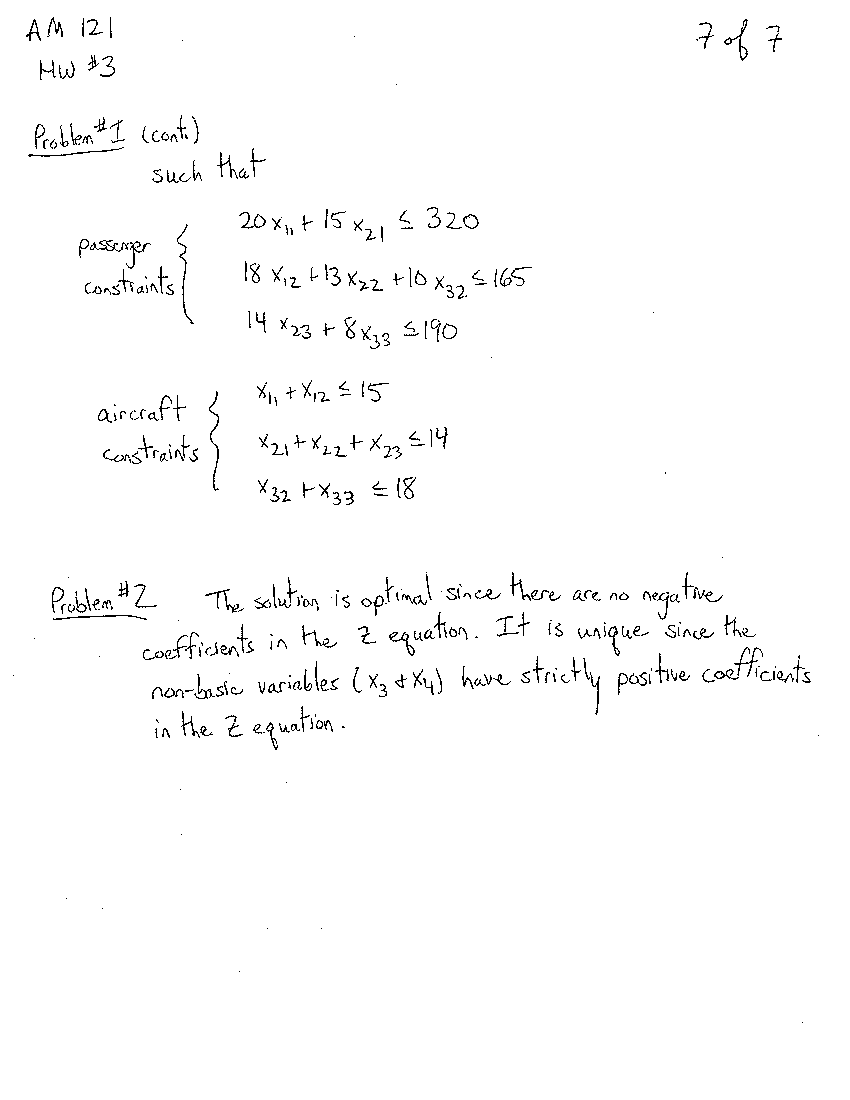 AM 121
7 of 7
HW #3
Problem #1 (cont.)
such that
passenger constraints { 20 x₁₁ + 15 x₂₁ ≤ 320
18 x₁₂ + 13 x₂₂ + 10 x₃₂ ≤ 165
14 x₂₃ + 8 x₃₃ ≤ 190
aircraft constraints { x₁₁ + x₁₂ ≤ 15
x₂₁ + x₂₂ + x₂₃ ≤ 14
x₃₂ + x₃₃ ≤ 18
Problem #2 The solution is optimal since there are no negative
coefficients in the Z equation. It is unique since the
non-basic variables (x₃ + x₄) have strictly positive coefficients
in the Z equation.